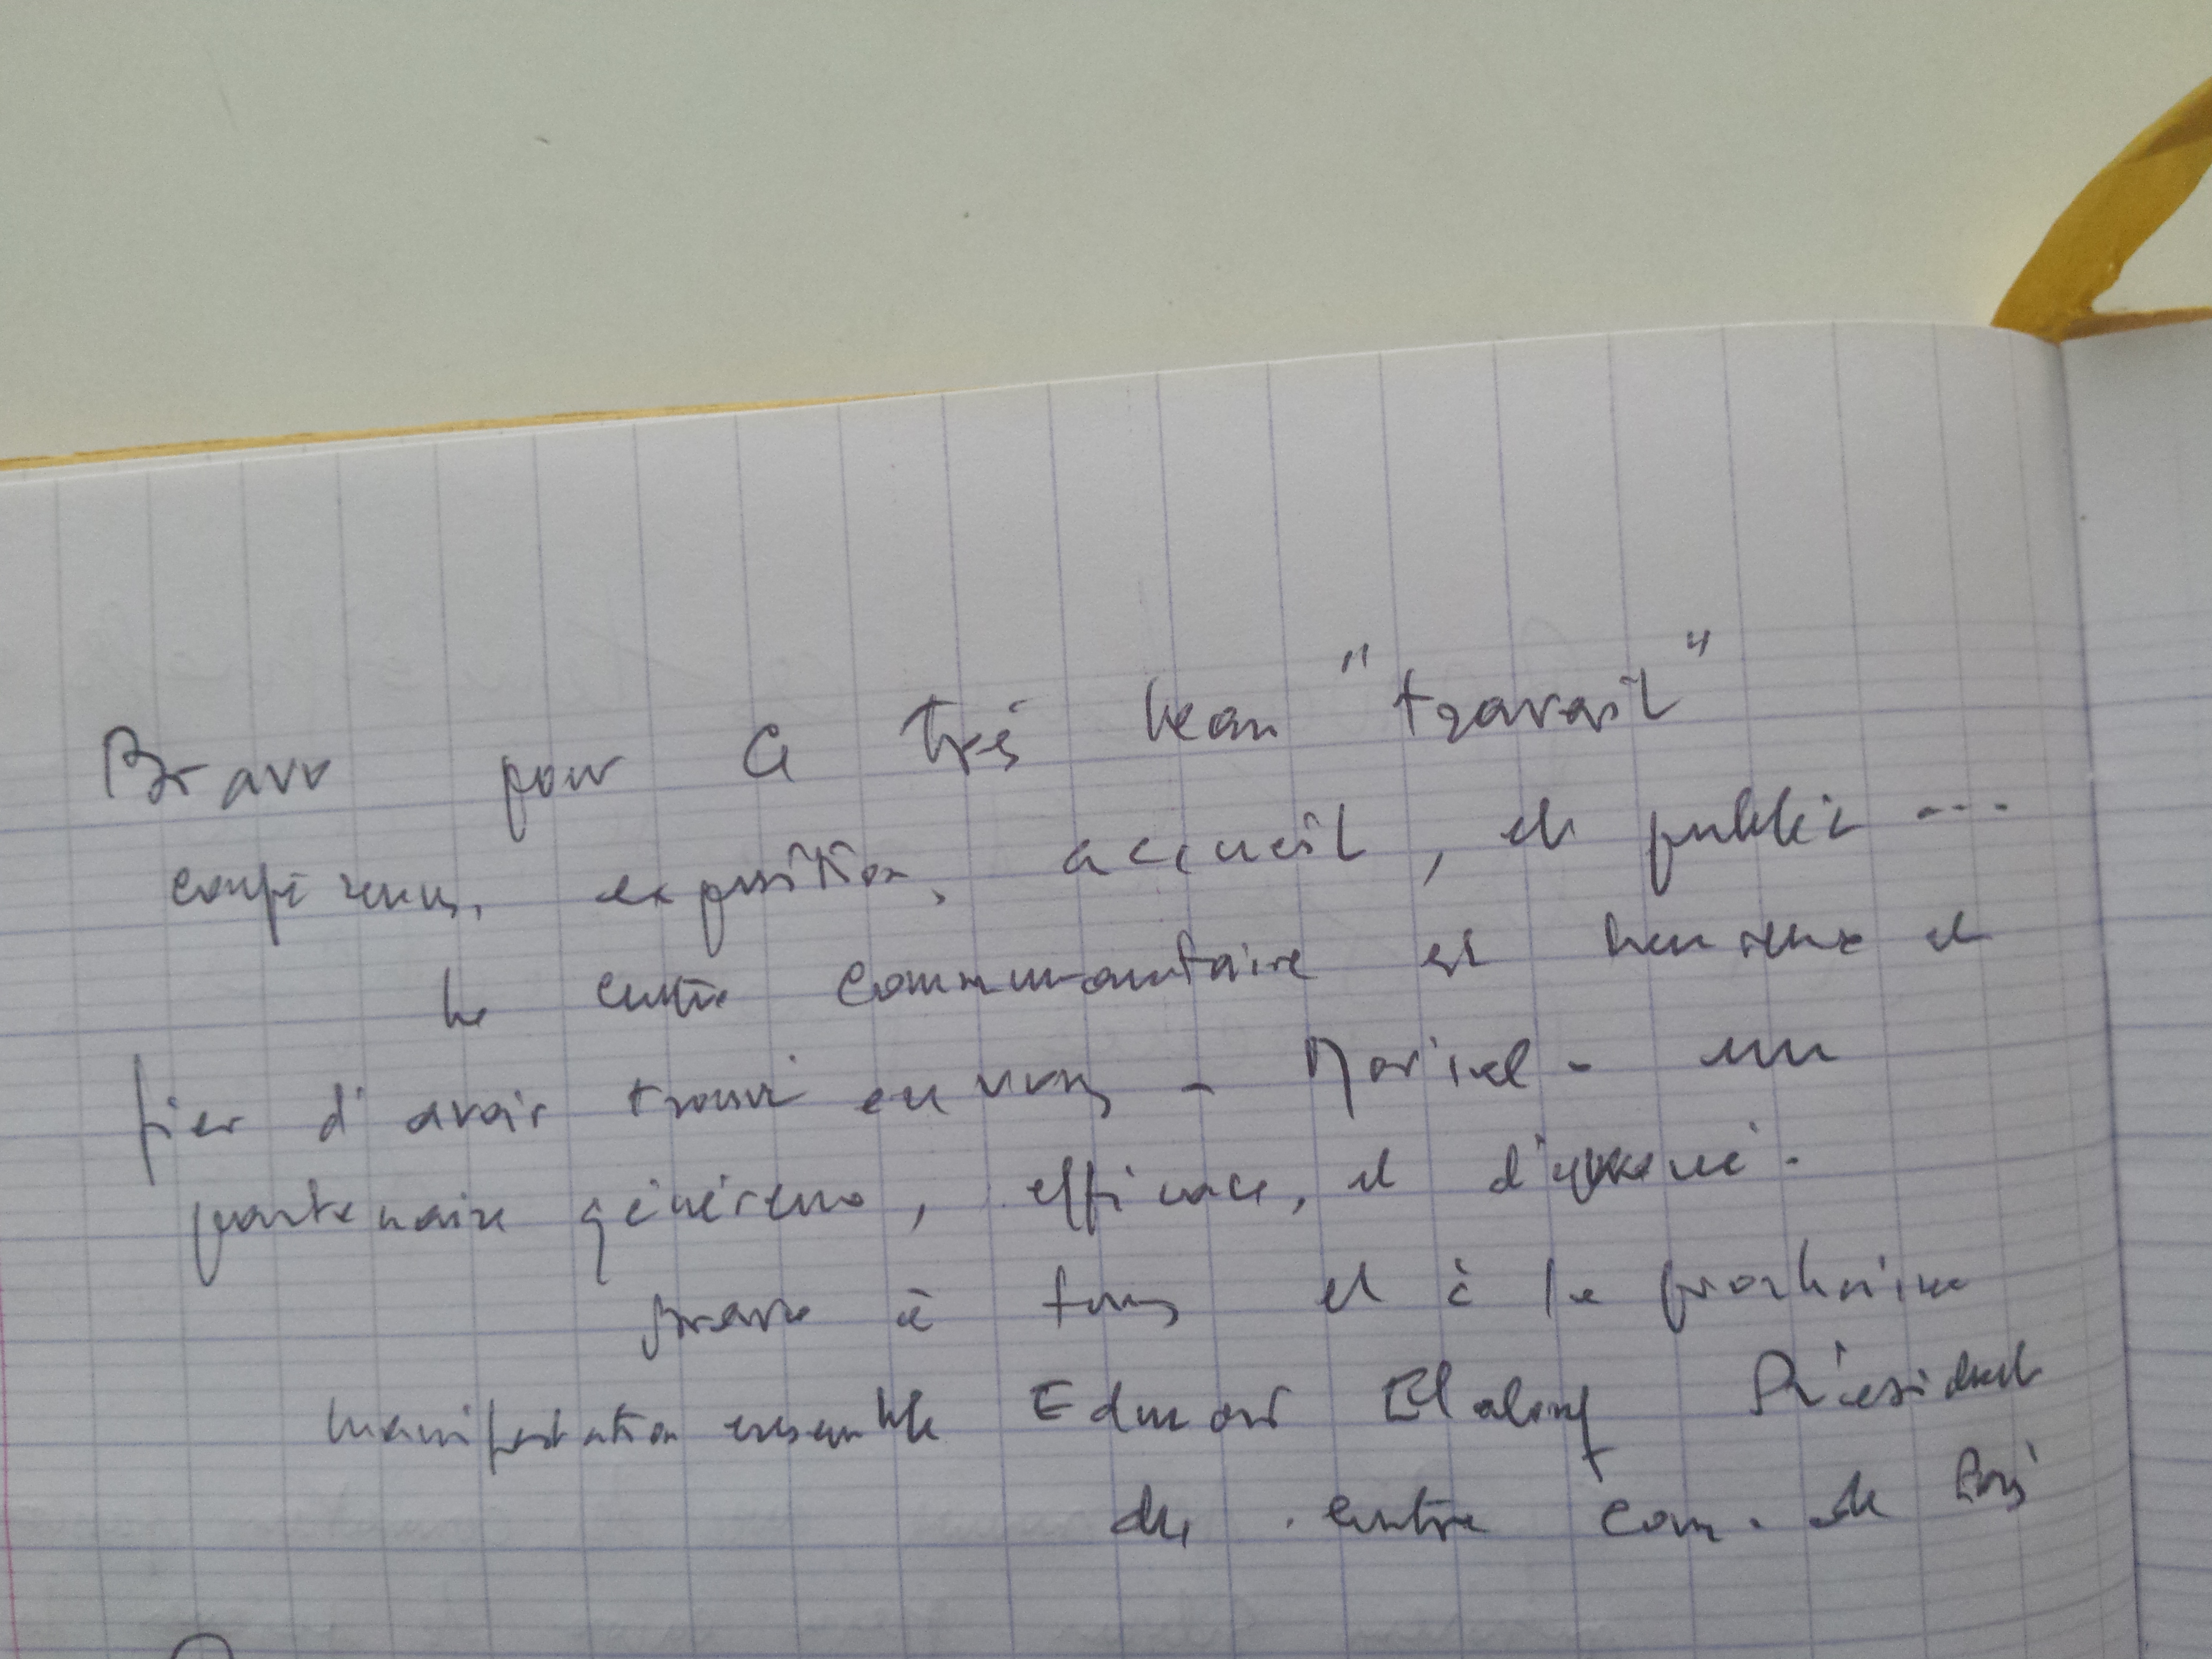 Bravo pour ce très beau "travail"
conférences, exposition, accueil, et public ...
Le centre communautaire est heureux et
fier d'avoir trouvé en vous - Morial - un
partenaire généreux, efficace, et
Bravo à tous et à la prochaine
manifestation ensemble Edmond Elalouf Président
du centre com. de Paris